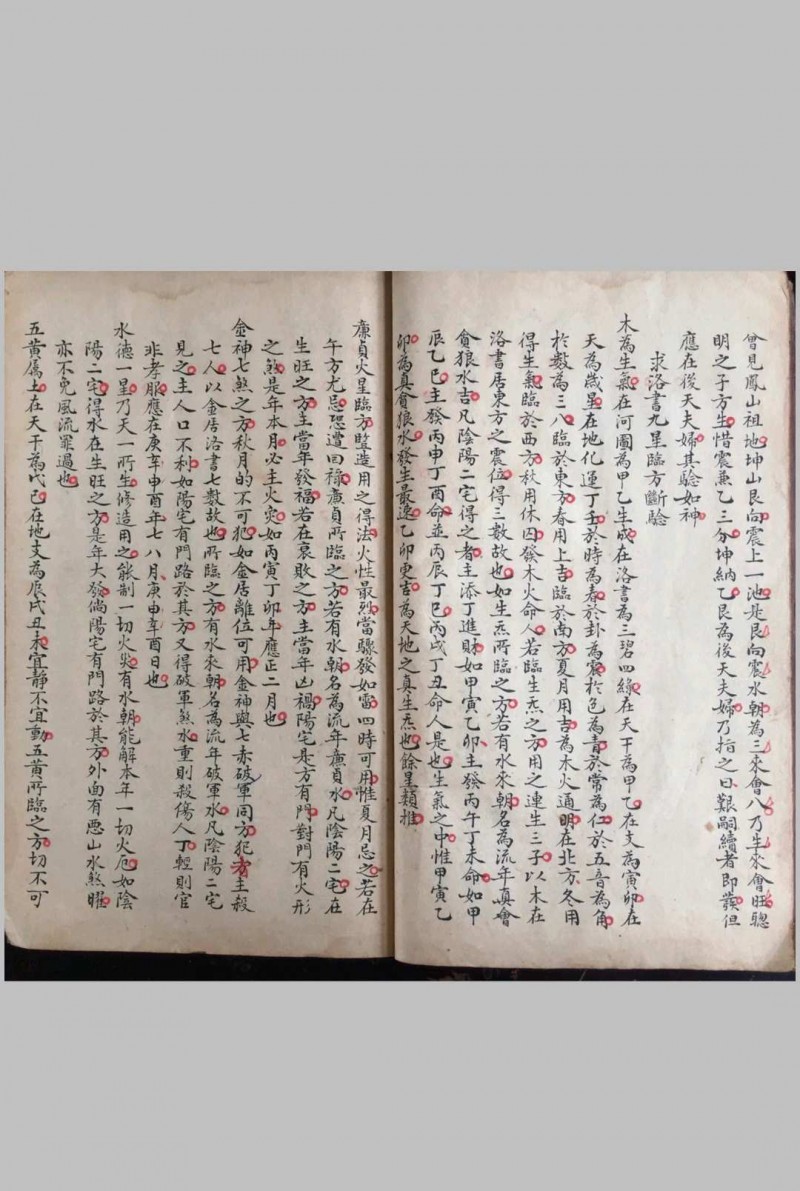 曾見鳳山祖地坤山艮向震上一池是艮向震水朝為三來會八乃生來會旺聰
明之子方生惜震兼乙三分坤納乙艮為後天夫婦乃指之曰艱嗣續者即發但
應在後天夫婦其驗如神
求洛書九星臨方斷驗
木為生氣在河圖為甲乙生成在洛書為三碧四綠在天干為甲乙在支為寅卯在
天為歲星在地化運丁壬於時為春於卦為震於色為青於常為仁於五音為角
於數為三八臨於東方春用上吉臨於南方夏月用吉為木火通明在北方冬用
得生氣臨於西方秋用休囚發木火命人若臨生炁之方用之連生三子以木在
洛書居東方之震位得三數故也如生炁所臨之方若有水來朝名為流年真會
貪狼水吉凡陰陽二宅得之者主添丁進財如甲寅乙卯主發丙午丁未命如甲
辰乙巳主發丙申丁酉命並丙辰丁巳丙戌丁丑命人是也生氣之中惟甲寅乙
卯為真貪狼水發生最速乙卯更吉為天地之真生炁也餘星類推
廉貞火星臨方豎造用之得法火性最烈當驟發如雷四時可用惟夏月忌之若在
午方尤忌恐遭回祿廉貞所臨之方若有水朝名為流年廉貞水凡陰陽二宅在
生旺之方主當年發福若在衰敗之方主當年凶禍陽宅是方有門對門有火形
之煞是年本月必主火灾如丙寅丁卯年應正二月也
金神七煞之方秋月的不可犯如金居離位可用金神與七赤破軍同方犯者主殺
七人以金居洛書七數故也所臨之方有水來朝名為流年破軍水凡陰陽二宅
見之主人口不利如陽宅有門路於其方又得破軍煞水重則殺傷人丁輕則官
非孝服應在庚辛申酉年七八月庚申辛酉日也
水德一星乃天一所生修造用之能制一切火災有水朝能解本年一切火厄如陰
陽二宅得水在生旺之方是年大發倘陽宅有門路於其方外面有惡山水煞曜
亦不免風流罪過也
五黃屬土在天干為戊己在地支為辰戌丑未宜靜不宜動五黃所臨之方切不可